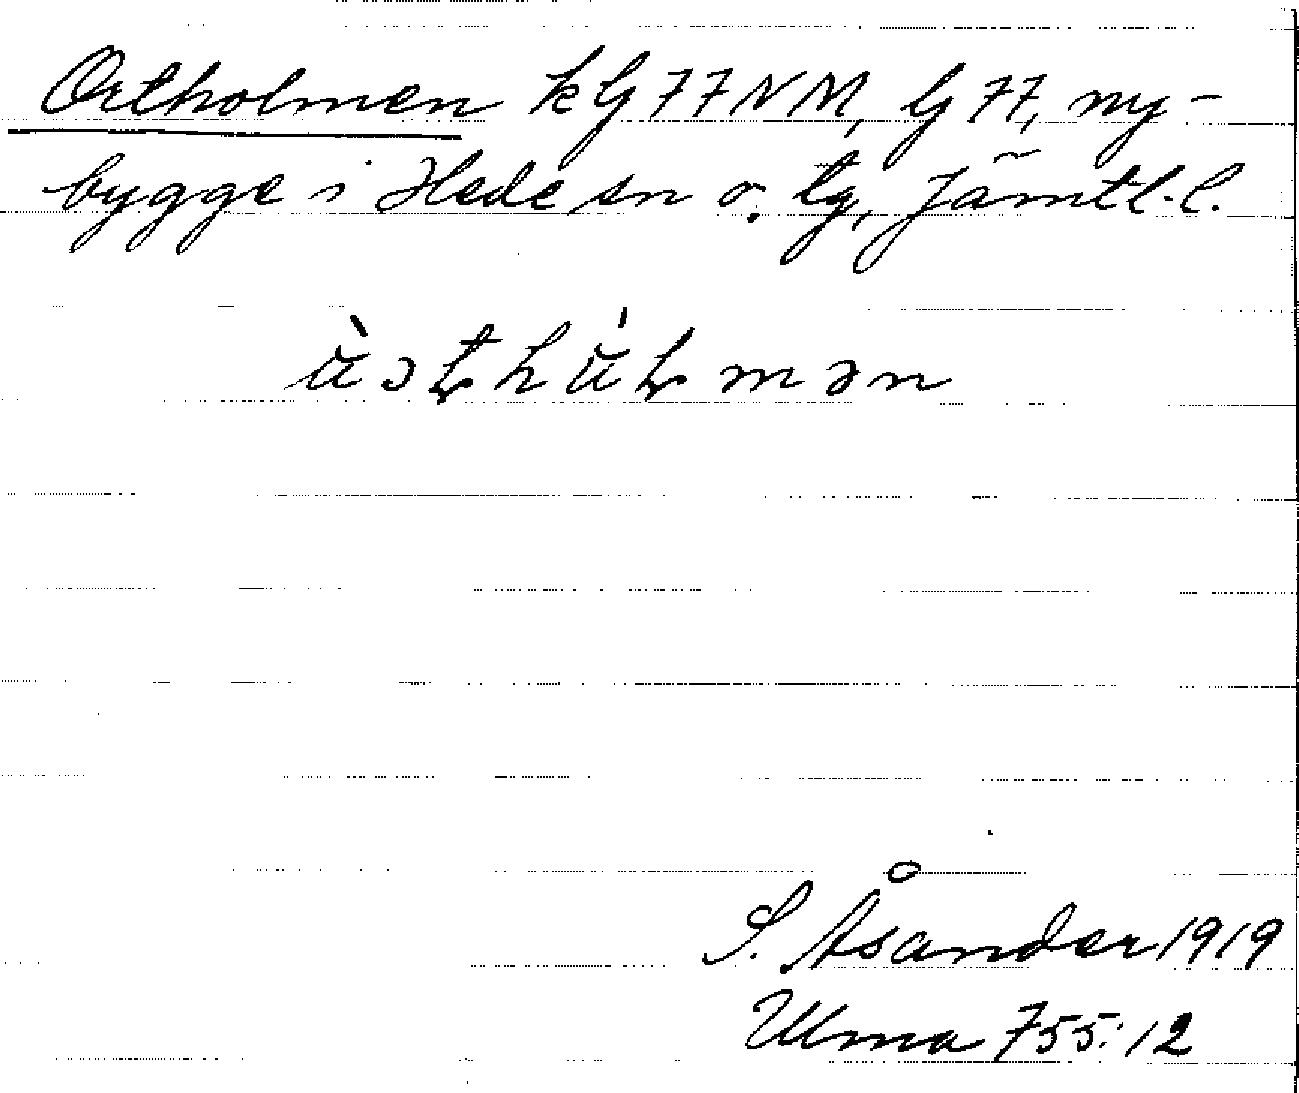 Ortholmen kG77NM, G77, ny-
bygge i Hede sn o. tg, Jämtl. l.
S. Åsander 1919
Ulma 755:12